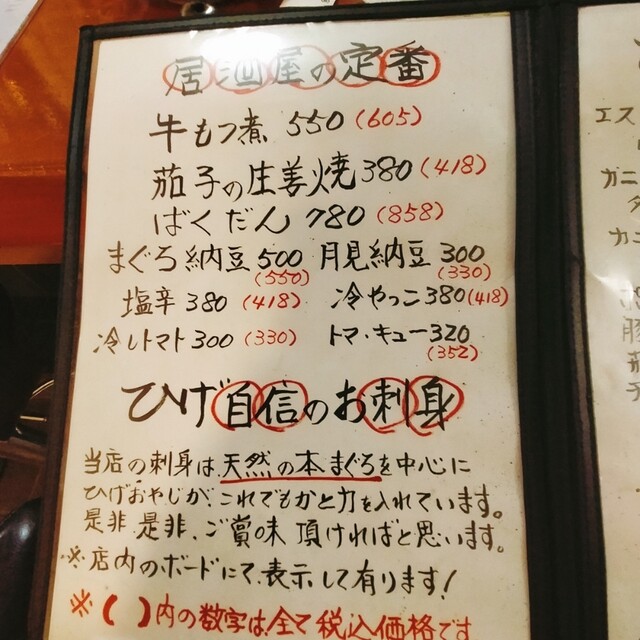 居酒屋の定番
牛もつ煮 550(605)
茄子の生姜焼 380(418)
ばくだん 780(858)
まぐろ納豆 500(550) 月見納豆 300(330)
塩辛 380(418) 冷やっこ 380(418)
冷しトマト 300(330) トマ・キュー 320(352)
ひげ自信のお刺身
当店の刺身は、天然の本まぐろを中心に
ひげおやじが、これでもかと力を入れています。
是非、是非、ご賞味頂ければと思います。
※店内のボードにて、表示して有ります!
※( )内の数字は、全て税込価格です
エス
ガニ
カニ
豚